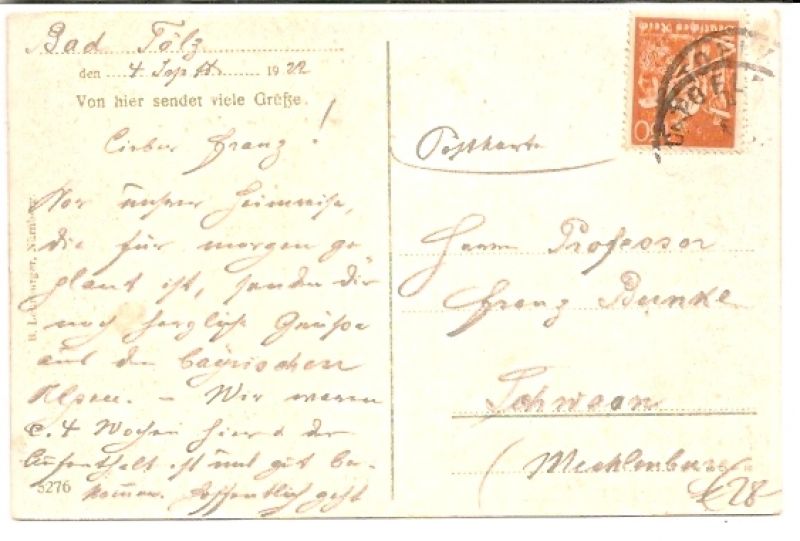 Bad Tölz
den 4 Sept 1922
Von hier sendet viele Grüße.
Lieber Franz!
Vor unsrer Heimreise,
die für morgen ge
plant ist, sende dir
noch herzliche Grüße
aus den bayrischen
Alpen. – Wir waren
c. 4 Wochen hier & der
Aufenthalt ist uns gut be-
kommen. Hoffentlich geht
5276
Nürnberg
Deutsches Reich
Postkarte
Herrn Professor
Franz Bunke
Schwaan
(Mecklenburg